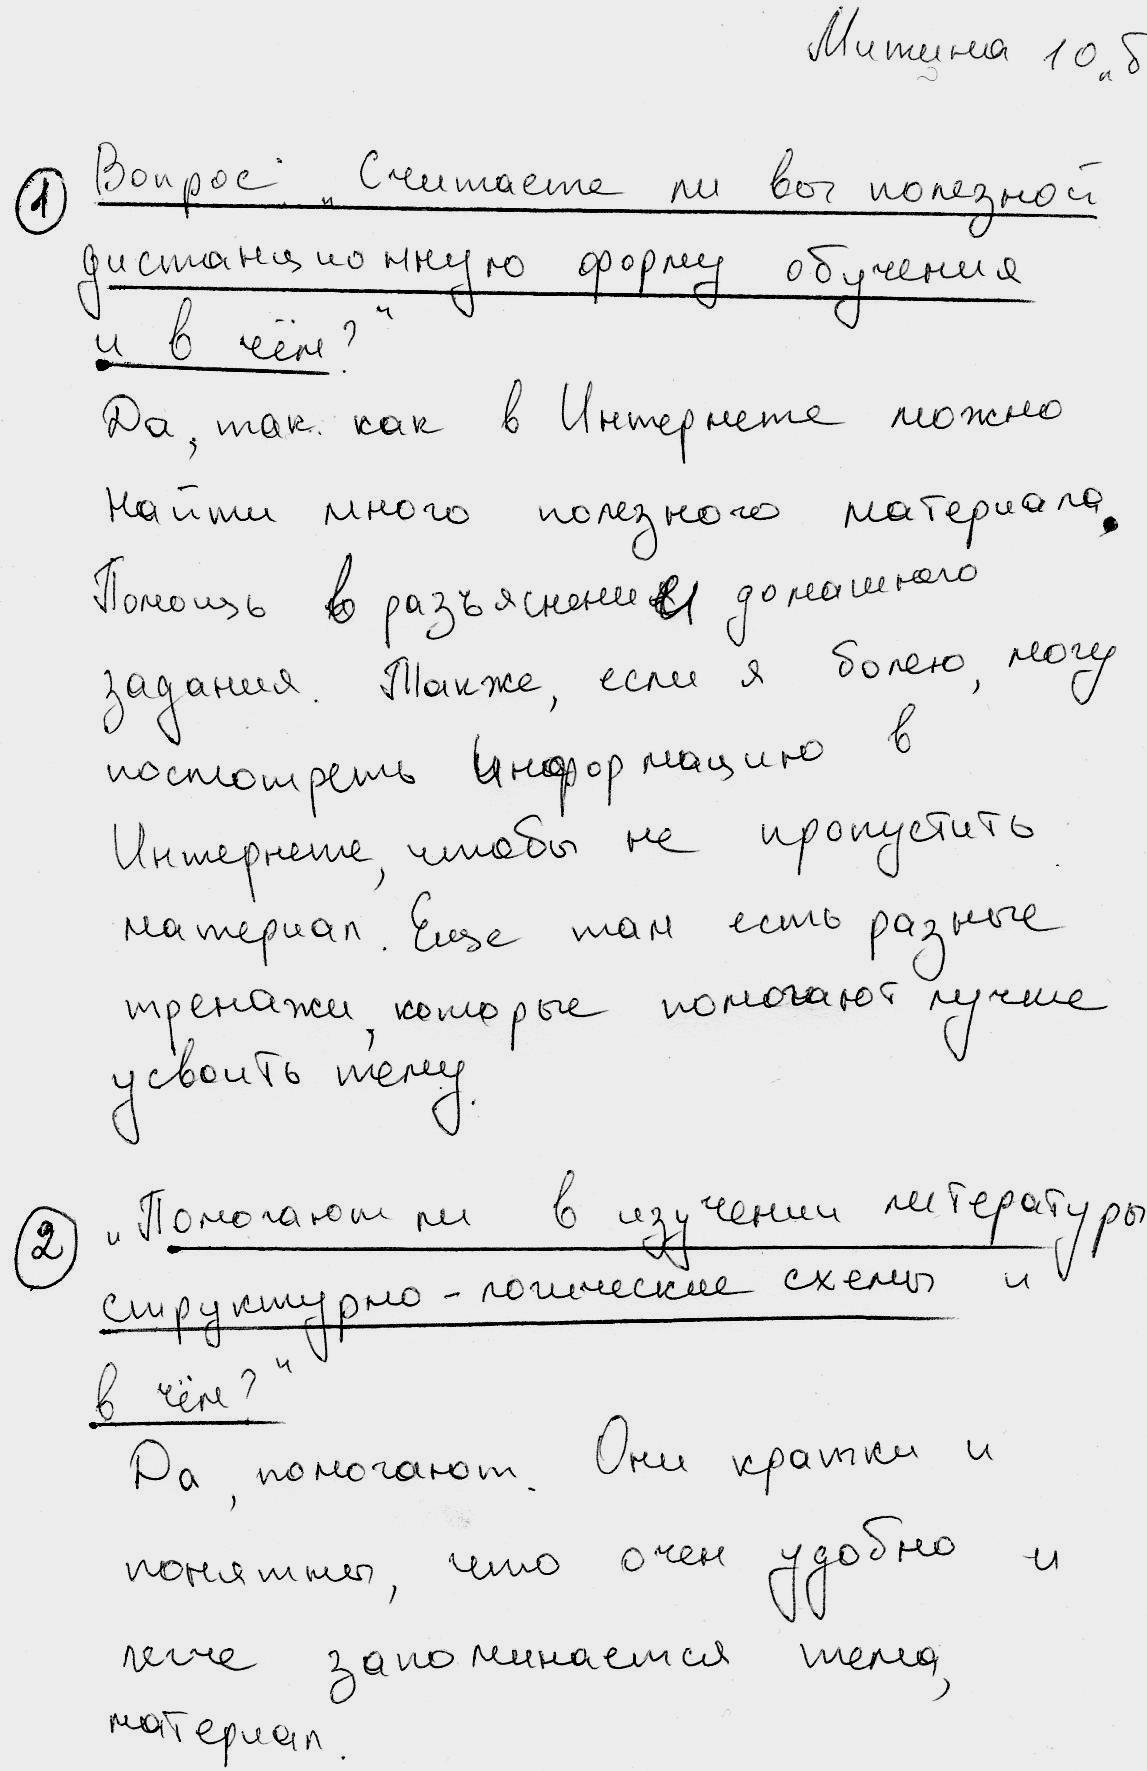 Митина 10 „б
1 Вопрос: „Считаете ли вы полезной
дистанционную форму обучения
и в чём?“
Да, так как в Интернете можно
найти много полезного материала.
Помощь в разъяснении домашного
задания. Также, если я болею, могу
посмотреть информацию в
Интернете, чтобы не пропустить
материал. Еще там есть разные
тренажи, которые помогают лучше
усвоить тему.
2 „Помогают ли в изучении литературы
структурно-логические схемы и
в чём?“
Да, помогают. Они кратки и
понятны, что очен удобно и
легче запоминается тема,
материал.